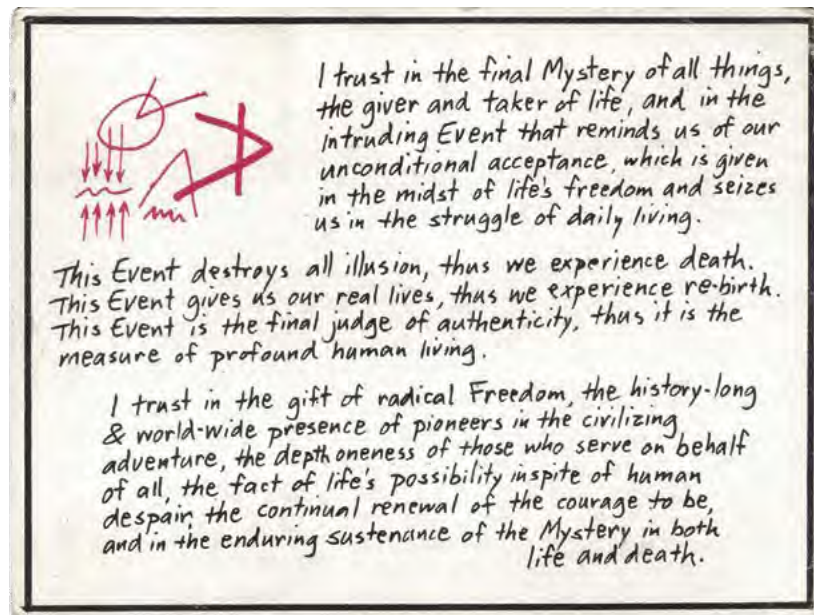 I trust in the final Mystery of all things,
the giver and taker of life, and in the
intruding Event that reminds us of our
unconditional acceptance, which is given
in the midst of life's freedom and seizes
us in the struggle of daily living.
This Event destroys all illusion, thus we experience death.
This Event gives us our real lives, thus we experience re-birth.
This Event is the final judge of authenticity, thus it is the
measure of profound human living.
I trust in the gift of radical Freedom, the history-long
& world-wide presence of pioneers in the civilizing
adventure, the depth oneness of those who serve on behalf
of all, the fact of life's possibility inspite of human
despair, the continual renewal of the courage to be,
and in the enduring sustenance of the Mystery in both
life and death.